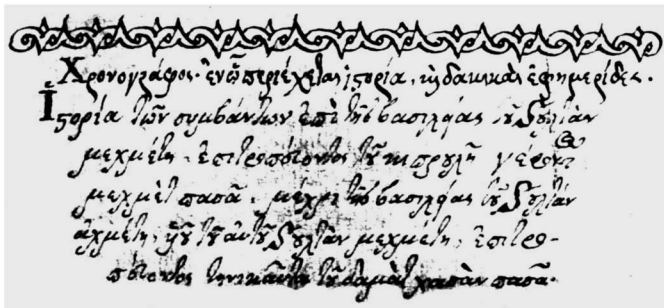 Χρονογράφος· ἐν ᾧ περιέχεται ἱστορία, καὶ δακικαὶ ἐφημερίδες.
Ἱστορία τῶν συμβάντων ἐπὶ τῆς βασιλείας τοῦ Σουλτὰν
μεχμέτη, ἐπιτροπεύοντος τοῦ κιπρουλῆ γέροντος
μεχμὲτ πασᾶ, μέχρι τῆς βασιλείας τοῦ Σουλτὰν
ἀχμέτη, υἱοῦ τοῦ αὐτοῦ Σουλτὰν μεχμέτη, ἐπιτρο-
πεύοντος τηνικαῦτα τοῦ δαμὰτ χασὰν πασᾶ.